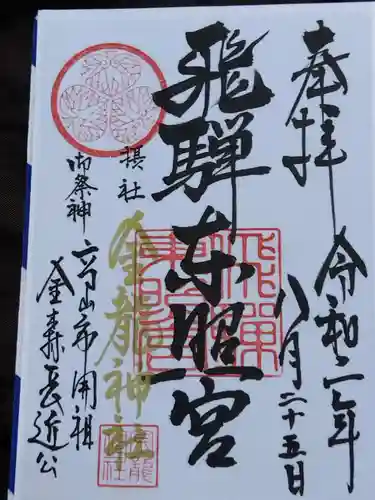 奉拝
令和二年
八月二十五日
飛騨東照宮
摂社
金龍神社
御祭神
高山市開祖
金森長近公
飛騨東照宮
金龍神社